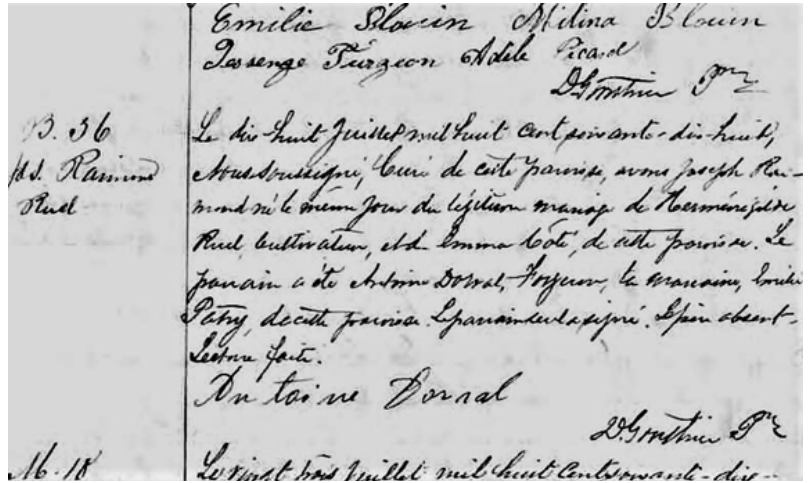 Emilie Blouin Mélina Blouin
Jessenge Turgeon Adèle Picard
DGonthier Ptre
B. 36
Jos. Raimond
Ruel
Le dix huit Juillet mil huit cent soixante-dix-huit,
Nous soussigné, Curé de cette paroisse, avons Joseph Rai-
mond né le même jour du légitime mariage de Herménégilde
Ruel, Cultivateur, et d'Emma Côté, de cette paroisse. Le
parrain a été Antoine Dorval, Forgeron, la marraine, Emilie
Patry, de cette paroisse. Le parrain seul a signé. Le père absent.
Lecture faite.
Antoine Dorval
DGonthier Ptre
M. 18
Le vingt trois Juillet mil huit cent soixante-dix-